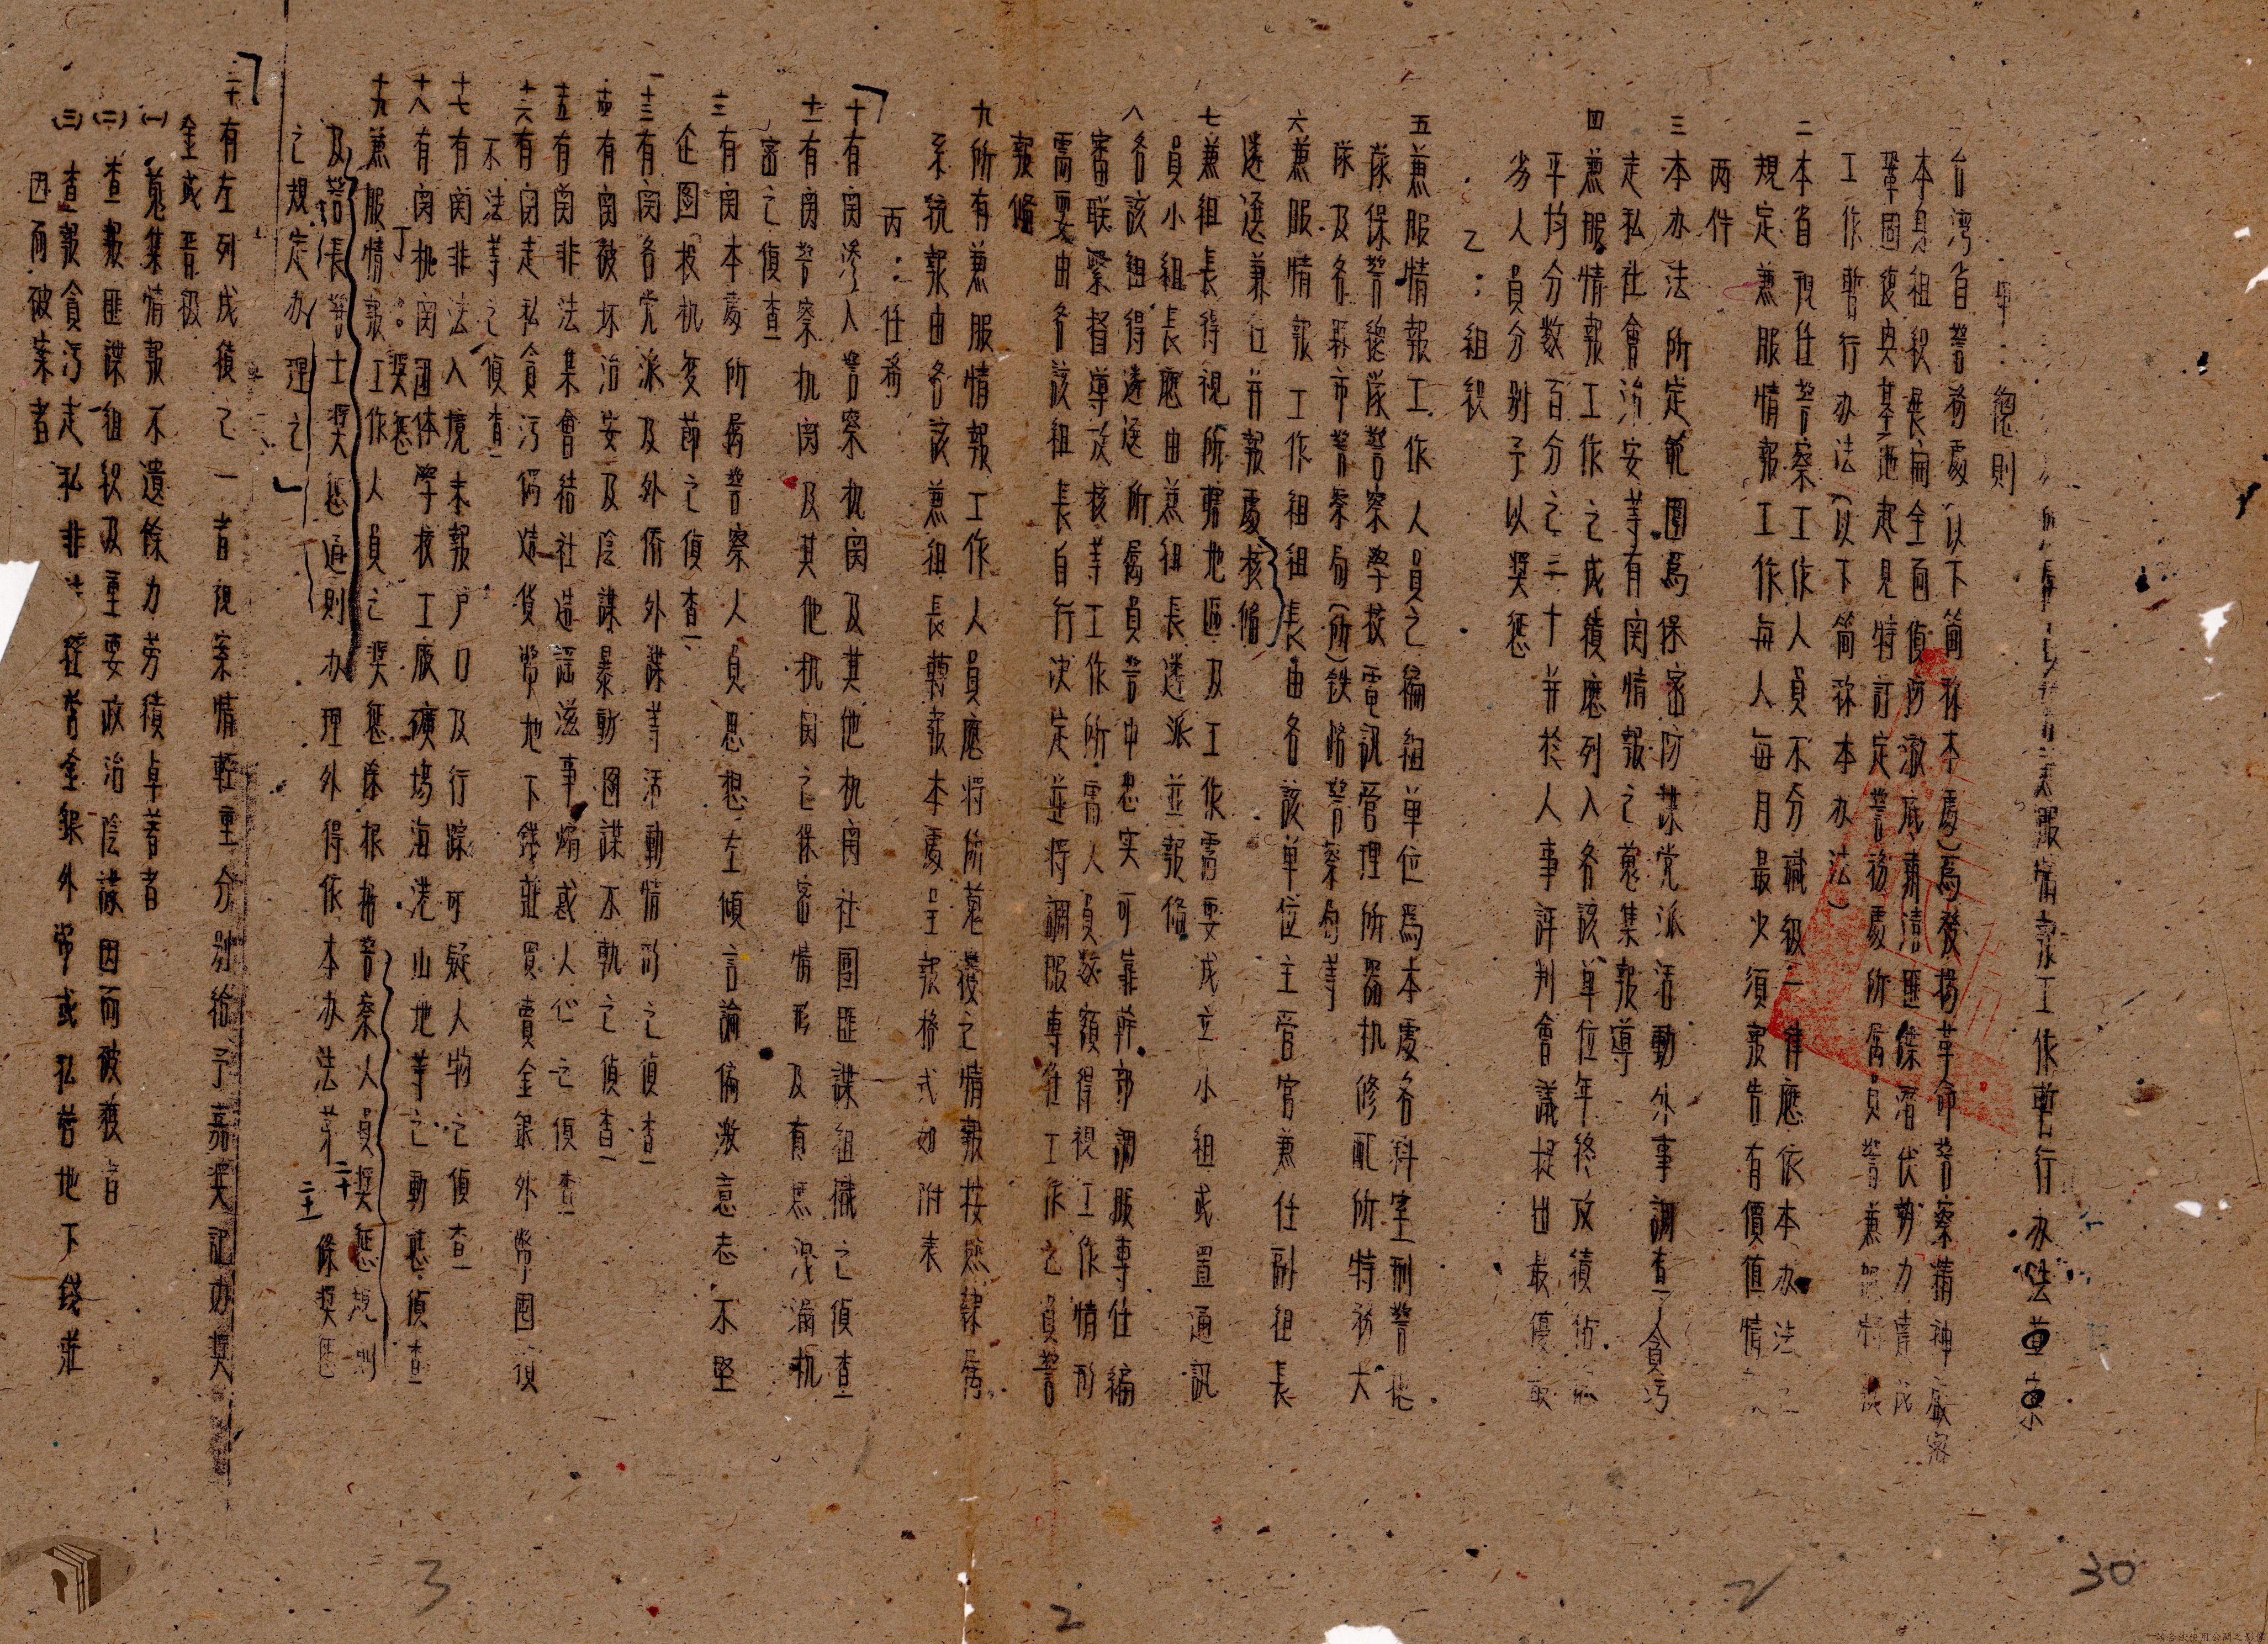 服情報工作暫行办法草案
甲：總則
台湾省警务處（以下简称本處）為發揚革命警察精神嚴密
本身组织展開全面偵防澈底肅清匪諜潛伏势力
鞏固復兴基地起見特訂定警務處所屬員警兼服情報
工作暫行办法（以下简称本办法）
二本省现任警察工作人員不分職級一律應依本办法之
規定兼服情報工作每人每月最少須報告有價值情報
两件
三本办法所定範圍為保密防諜党派活動外事調查貪污
走私社會治安等有関情報之蒐集報導
四兼服情報工作之成績應列入各該單位年終攷績佔總
平均分数百分之三十并於人事評判會議提出最優最
劣人員分别予以奬懲
乙：组织
五兼服情報工作人員之編组单位為本處各科室刑警總
隊保警總隊警察學校電訊管理所器机修配所特務大
隊及各縣市警察局（所）鉄路警察局等
六兼服情報工作组组長由各該单位主管官兼任副组長
遴選兼任并報處核備
七兼组長得視所轄地區及工作需要成立小组或置通訊
員小组長應由兼组長遴派並報備
八各該组得遴选所屬員警中忠实可靠幹部調服專任編
審联繫督導攷核等工作所需人員数額得視工作情形
需要由各該组長自行决定並将調服專任工作之員警
報備
九所有兼服情報工作人員應将所蒐獲之情報按照隸屬
系統報由各該兼组長轉報本處呈報格式如附表
丙：任務
十有関滲入警察机関及其他机関社團匪諜组織之偵查
十一有関警察机関及其他机関之保密情形及有無洩漏机
密之偵查
三有関本處所屬警察人員思想左傾言論偏激意志不堅
企图投机变節之偵查
十三有関各党派及外侨外諜等活動情形之偵查
十四有関破坏治安及陰謀暴動图謀不軌之偵查
十五有関非法集會结社造謡滋事煽惑人心之偵查
十六有関走私貪污偽造貨幣地下錢莊買賣金銀外幣囤積
不法等之偵查
十七有関非法入境未報户口及行踪可疑人物之偵查
十八有関机関团体學校工厰礦場海港山地等之動態偵查
丁：奬懲
十九兼服情報工作人員之奬懲除根据警察人員奬懲規則
及警長警士奬懲通則办理外得依本办法第二十二十一條奬懲
之規定办理之
二十有左列成績之一者視案情輕重分别给予嘉奬記功奬
金或晋级
（一）蒐集情報不遺餘力劳績卓著者
（二）查報匪諜组织及重要政治陰謀因而破獲者
（三）查報貪污走私非法經营金銀外幣或私营地下錢莊
因而破案者
30
2
2
3